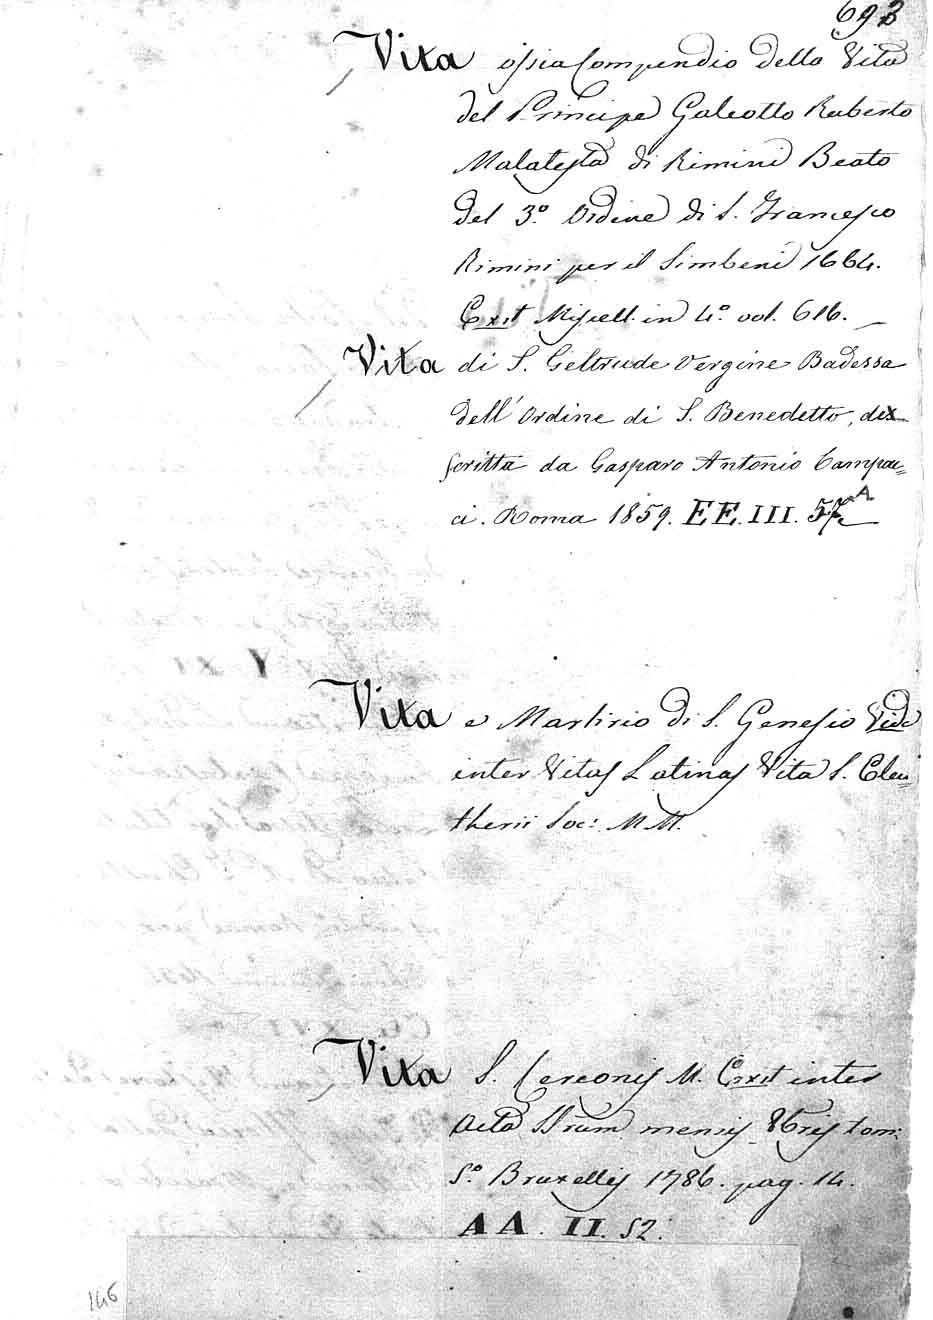 693
Vita ossia Compendio della Vita
del Principe Galeotto Ruberto
Malatesta di Rimini Beato
del 3.º Ordine di S. Francesco
Rimini per il Simbeni 1664.
Exit Miscell. in 4.º vol. 616.
Vita di S. Geltrude Vergine Badessa
dell' Ordine di S. Benedetto, des
scritta da Gasparo Antonio Campac=
ci. Roma 1859. EE. III. 57 A
Vita e Martirio di S. Genesio Vide
inter Vitas Latinas Vita S. Eleu=
therii Soc: M M.
Vita S. Cerconis M. Exit inter
Acta SSrum mensis 8bris tom:
5.º Bruxellis 1786. pag. 14.
AA. II. 52.
146